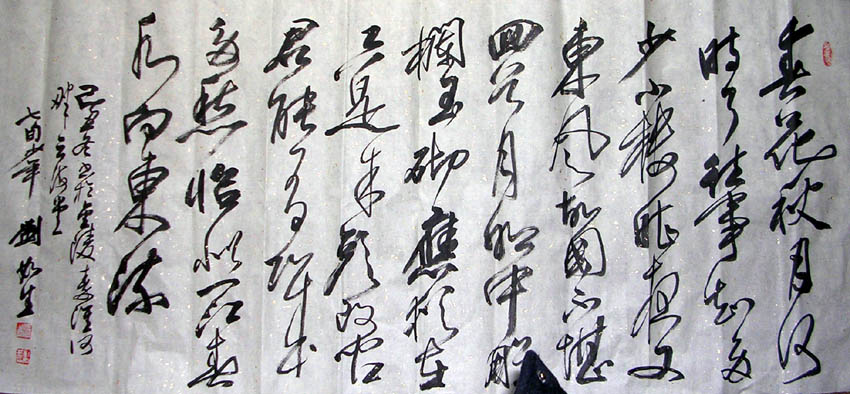 春花秋月何
時了往事知多
少小樓昨夜又
東風故國不堪
回首月明中雕
欄玉砌應猶在
只是朱顏改問
君能有
多愁恰似一江春
水向東流
己丑冬書於金陵秦淮河
畔
七旬 年 劉 生